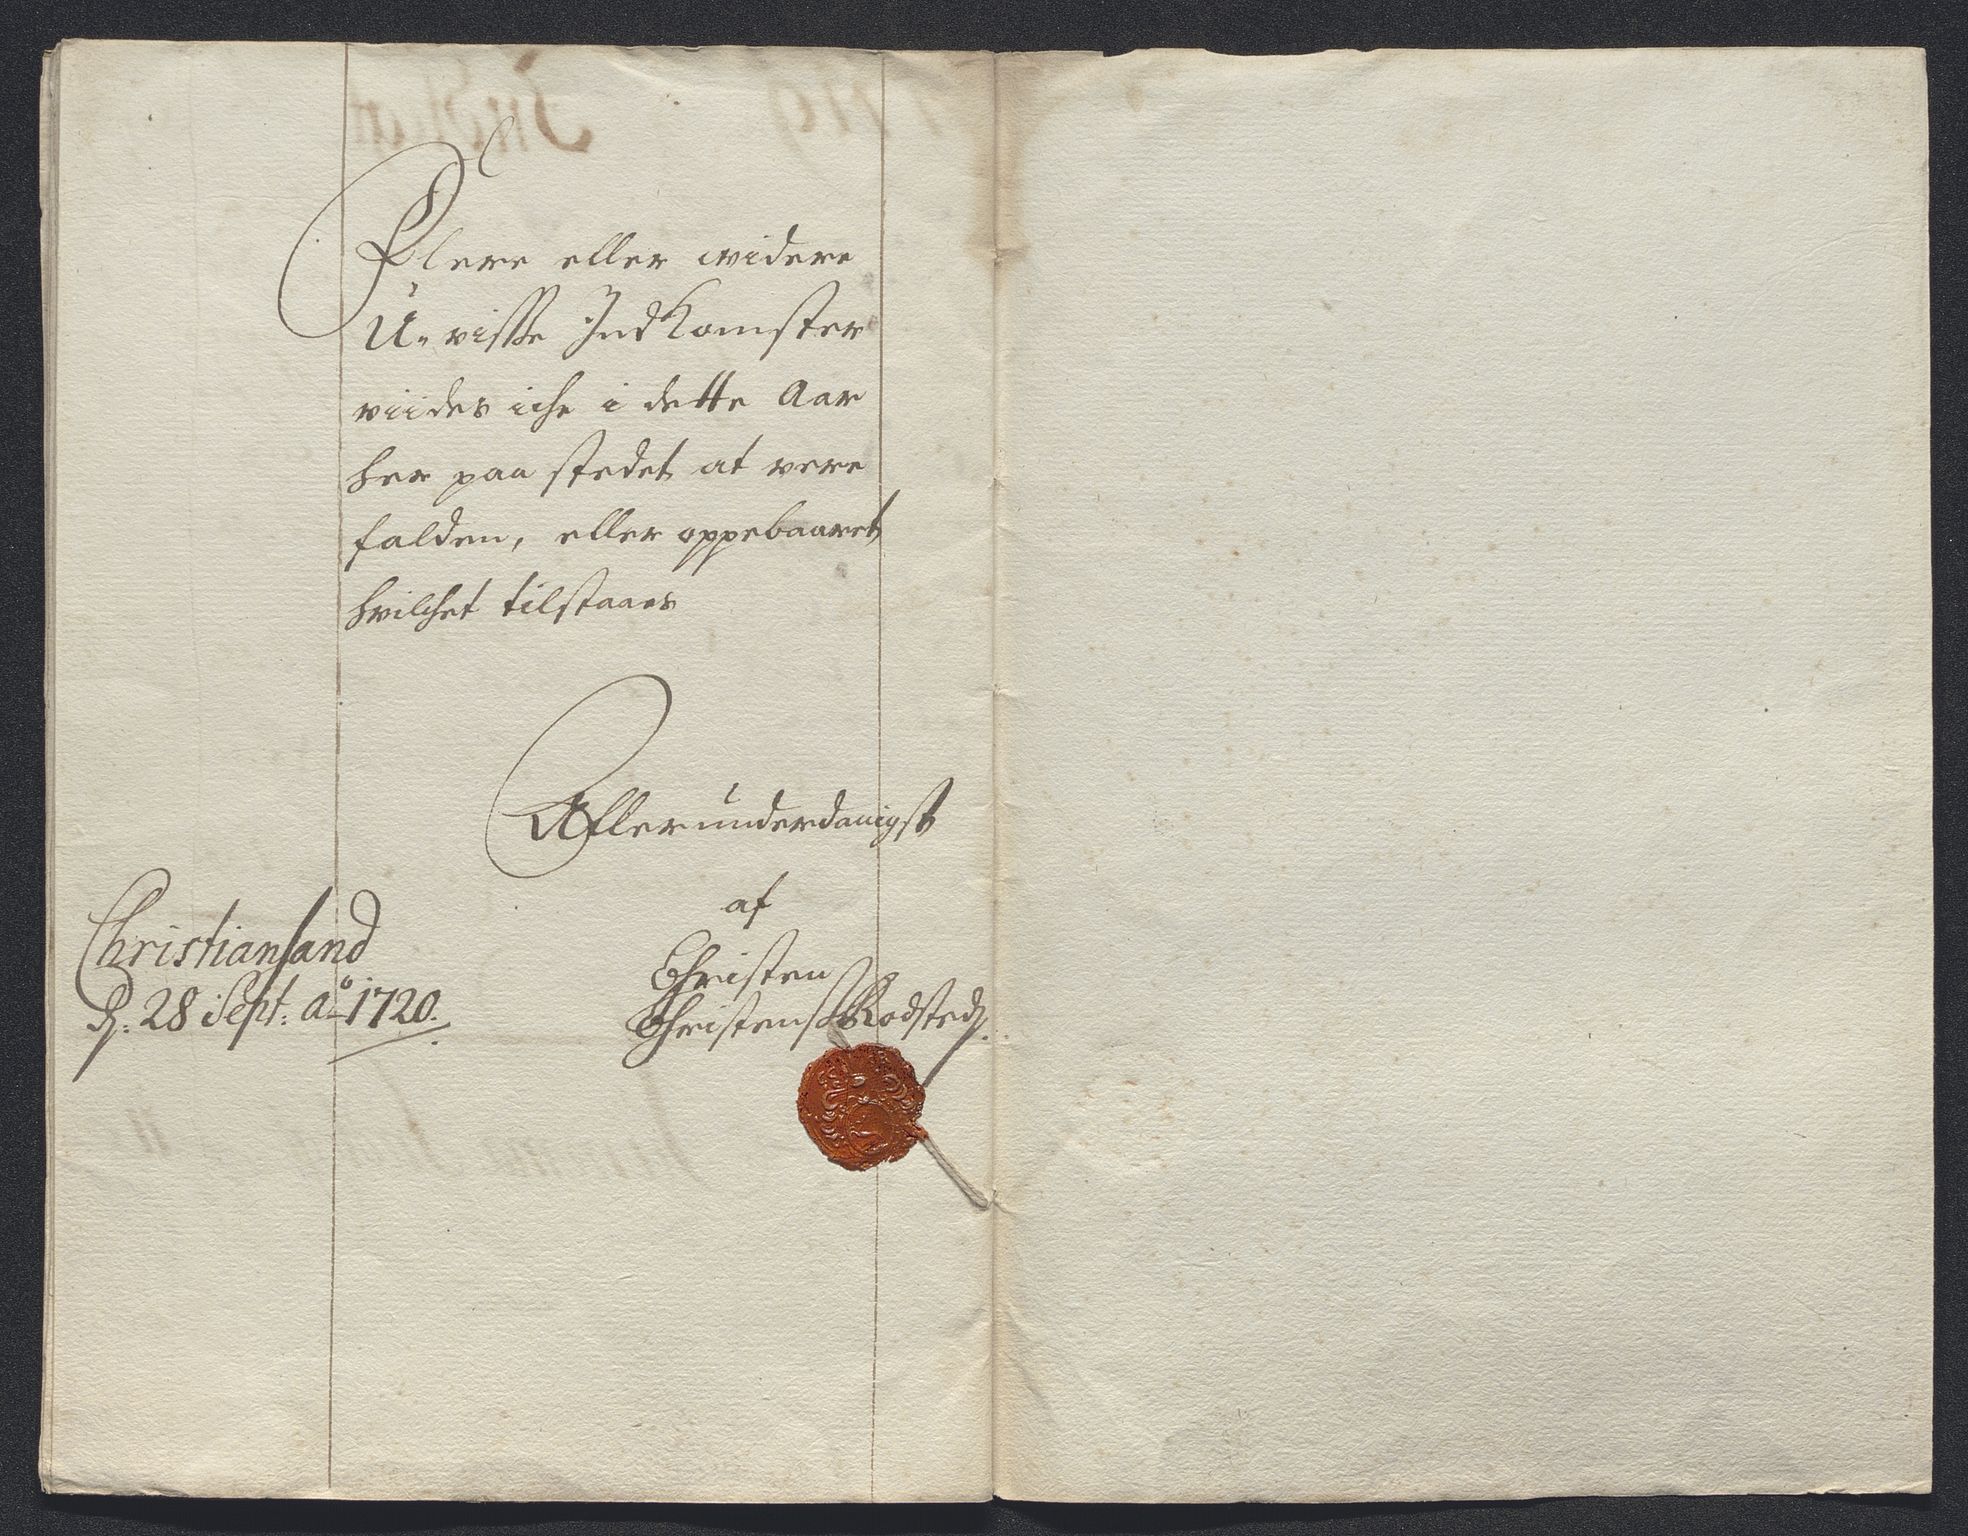 Flere eller widere
U-visse Indkomster
viides iche i dette Aar
her paa stedet at vere
falden, eller oppebaaret
hvilchet tilstaaes
Allerunderdanigst
af
Christen
Christens: Rodsted.
Christiansand
d: 28 Sept: Aº 1720.